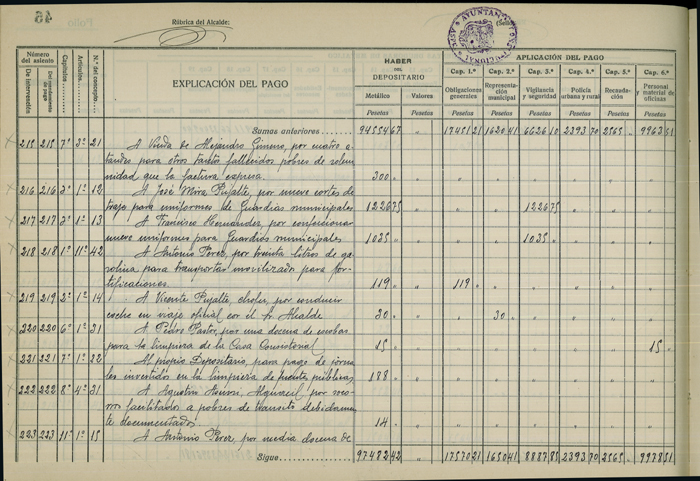 45
Folio
Rúbrica del Alcalde:
Sello
AYUNTAMIENTO CONSTITUCIONAL ASPE
Número del asiento
De intervención
Del mandamiento de pago
Capítulos
Artículos
N.º del concepto
EXPLICACIÓN DEL PAGO
HABER DEL DEPOSITARIO
Metálico Valores
Pesetas Pesetas
APLICACIÓN DEL PAGO
Cap. 1.º Cap. 2.º Cap. 3.º Cap. 4.º Cap. 5.º Cap. 6.º
Obligaciones generales
Representación municipal
Vigilancia y seguridad
Policía urbana y rural
Recaudación
Personal y material de oficinas
Pesetas Pesetas Pesetas Pesetas Pesetas Pesetas
Sumas anteriores 94554 67 " 17451 21 1620 41 6626 10 2393 70 2565 " 9963 51
215 215 7º 3º 21 A Vnda de Alejandro Gimeno, por cuatro a-
tandes para otros tantos fallecidos pobres de solem
nidad que la factura expresa. 300 "
216 216 3º 1º 12 A José Mira Pujalte, por nueve cortes de
traje para uniformes de Guardias municipales 1226 75 1226 75
217 217 3º 1º 13 A Francisco Hernandez, por confeccionar
nueve uniformes para Guardias municipales 1035 " 1035 "
218 218 1º 11º 42 A Antonio Perez, por treinta litros de ga-
solina para transportar movilizado para for-
tificaciones. 119 " 119 "
219 219 2º 1º 14 A Vicente Pujalte, chofer, por conducir
coche en viaje oficial con el Sr. Alcalde 30 " 30 "
220 220 6º 1º 31 A Pedro Pastor, por una docena de escobas
para la limpieza de la Casa Consistorial 15 " 15 "
221 221 7º 1º 22 Al propio Depositario, para pago de jorna
les invertidos en la limpieza de fuentes públicas 188 "
222 222 8º 4º 31 A Agustin Alguacil, por soco-
rros facilitados a pobres de transito debidamen
te documentados 14 "
223 223 11º 1º 15 A Antonio Perez, por media docena de
Sigue 97482 42 17570 21 1650 41 8887 85 2393 70 2565 " 9978 51